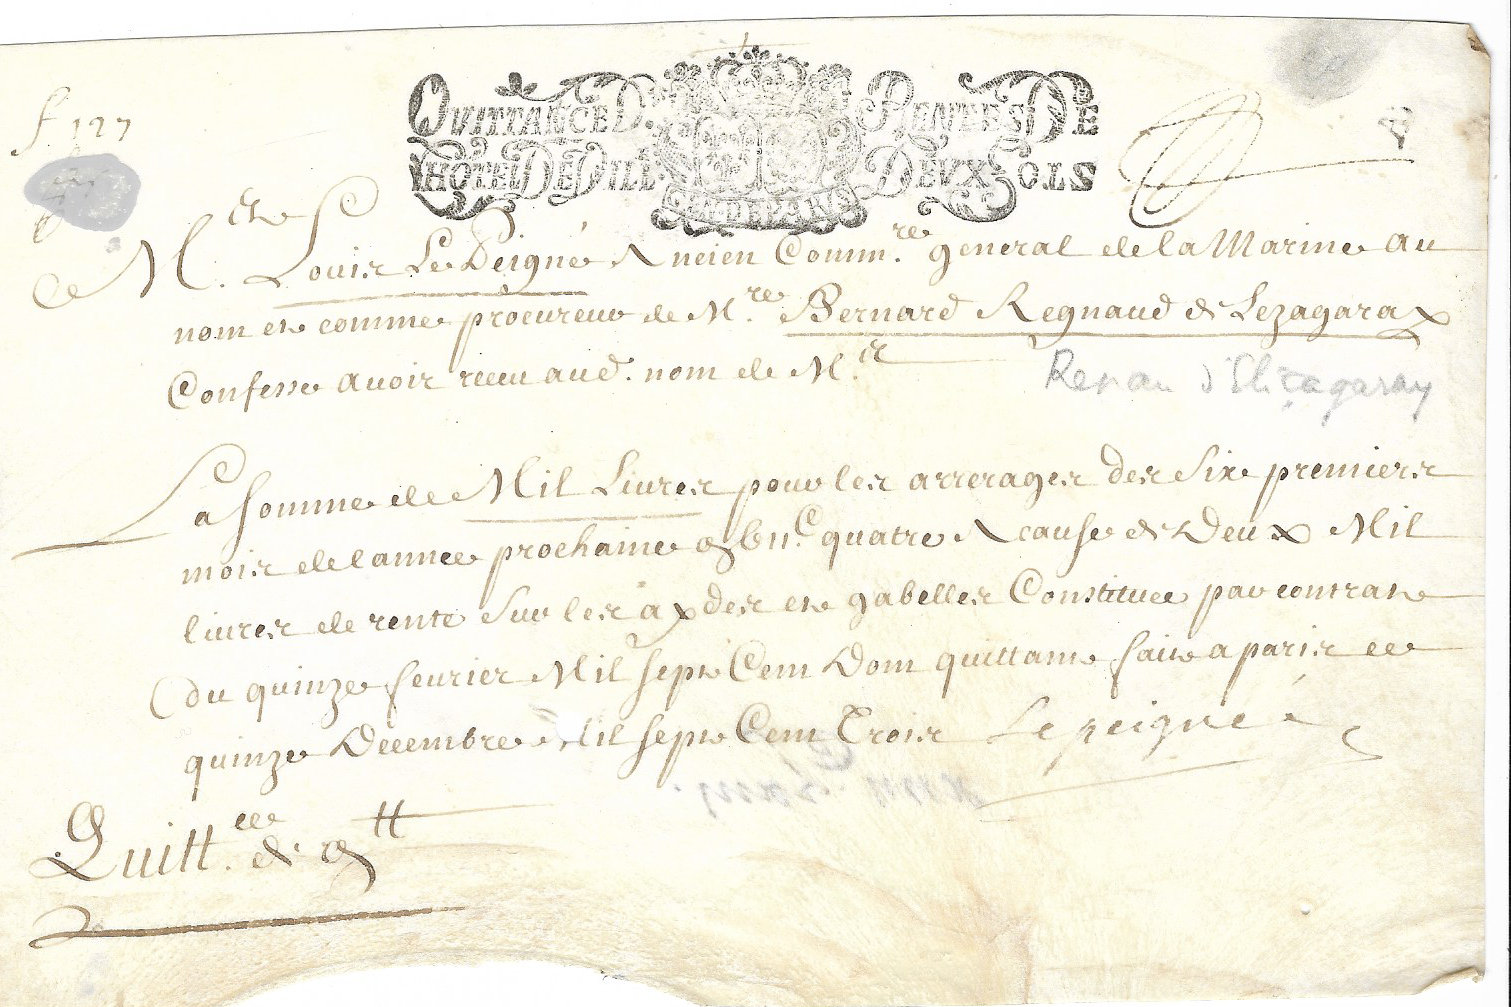 QVITTANCE D. RENTES DE
LHOTEL DE VILLE DEVX SOLS
GEN. DE PARIS
f 127
M.re Louis Le Peigné Ancien Comm.re general de la Marine au
nom et comme procureur de M.re Bernard Regnaud de Lezagara
Confesse avoir receu aud. nom de M.re
Renau d'Eliçagaray
La somme de Mil Livres pour les arrerages des six premiers
mois de lannée prochaine quatre A cause de Deux Mil
livres de rente sur les aydes et gabelles Constituee par contrat
du quinze fevrier Mil sept Cent Dont quittance faite a paris ce
quinze Decembre Mil sept Cent Trois Le peigné
Quitt.ce de